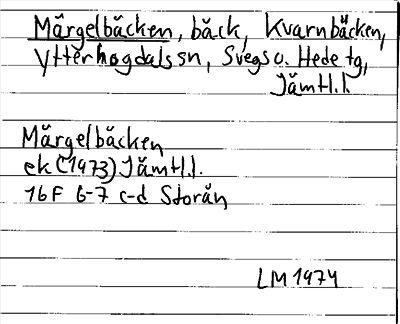 Märgelbäcken, bäck, Kvarnbäcken,
Ytterhogdals sn, Svegs o. Hede tg,
Jämtl.l.
Märgelbäcken
ek (1973) Jämtl.l.
16F 6-7 c-d Storån
LM 1974